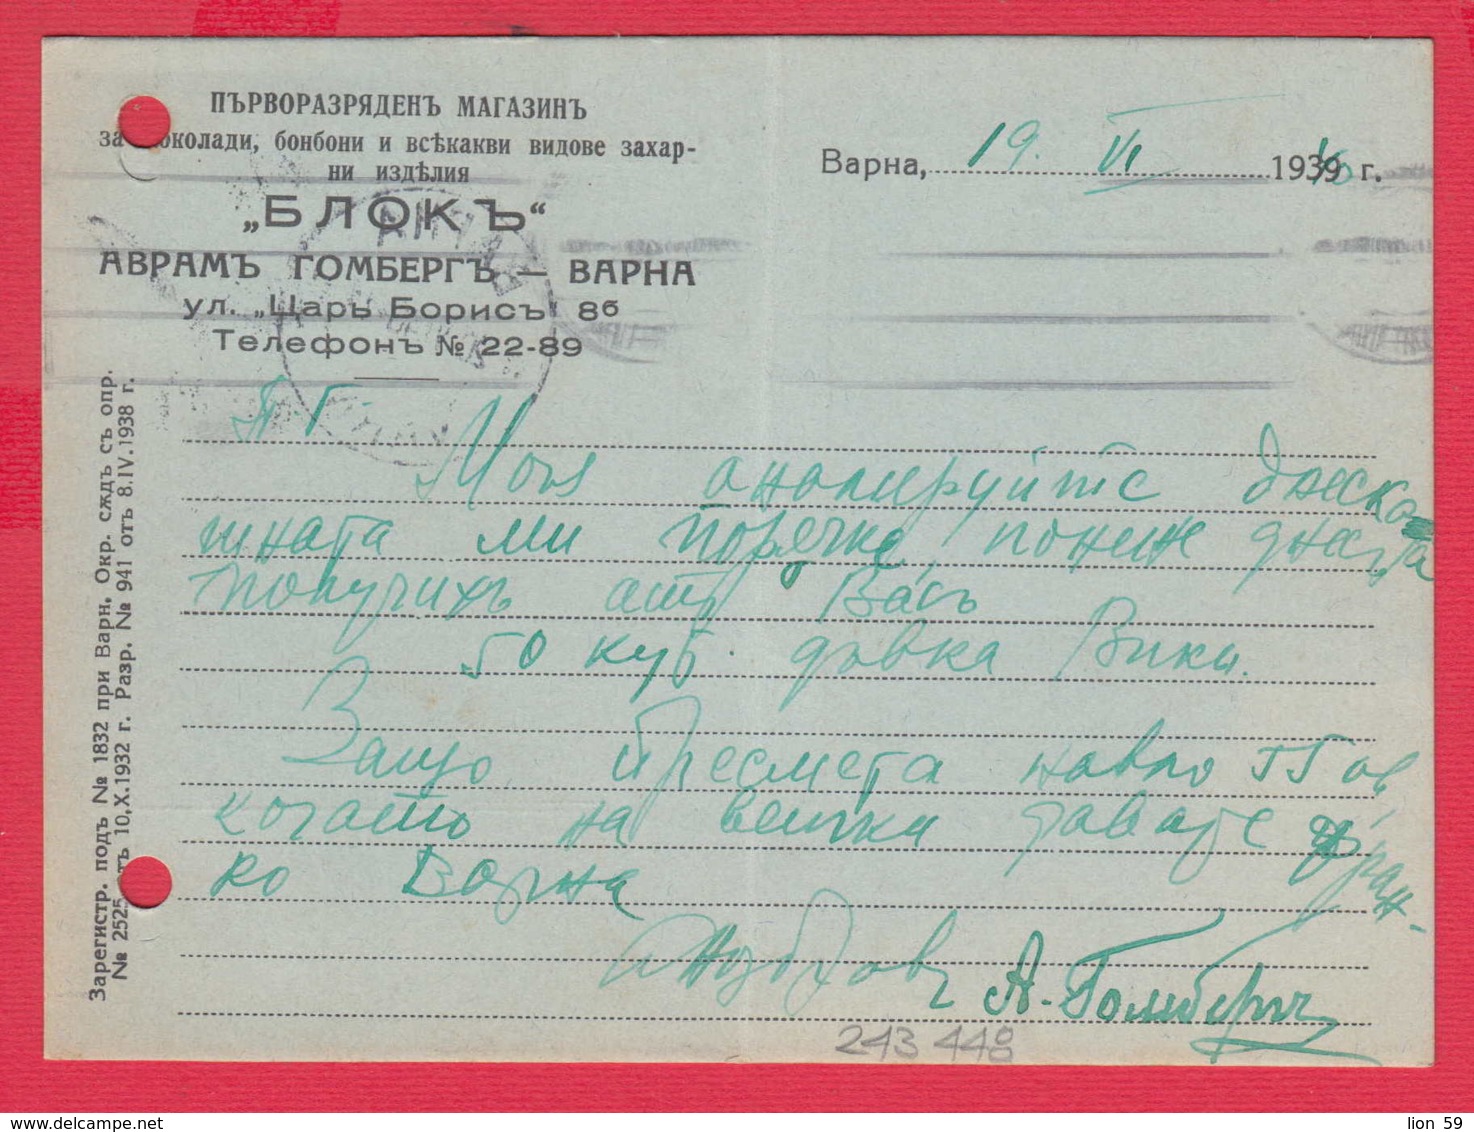 ПЪРВОРАЗРЯДЕНЪ МАГАЗИНЪ
за шоколади, бонбони и всѣкакви видове захар-
ни издѣлия
„БЛОКЪ“
АВРАМЪ ГОМБЕРГЪ — ВАРНА
ул. „Царь Борисъ“ 8б
Телефонъ № 22-89
Варна, 19. VI 1939 40 г.
Моля анолируйте днеска
шната ми поръчка, понеже днесъ
получихъ отъ Васъ
50 куб. дъвка Вики.
Защо пресмета навло
когато на всички давате фран-
ко Варна
А. Гомбергъ
Зарегистр. подъ № 1832 при Варн. Окр. сѫдъ съ опр.
№ 2525 отъ 10.X.1932 г. Разр. № 941 отъ 8.IV.1938 г.
243 448
lion 59